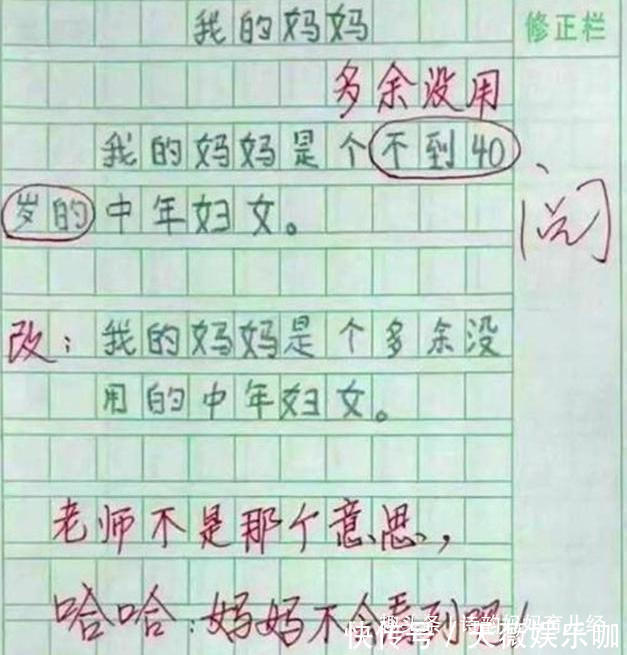 我的妈妈
修正栏
多余没用
我的妈妈是个不到40
岁的中年妇女。
阅
改：我的妈妈是个多余没
用的中年妇女。
老师不是那个意思，
哈哈，妈妈不会看到吧！
快传号／天薇娱乐咖